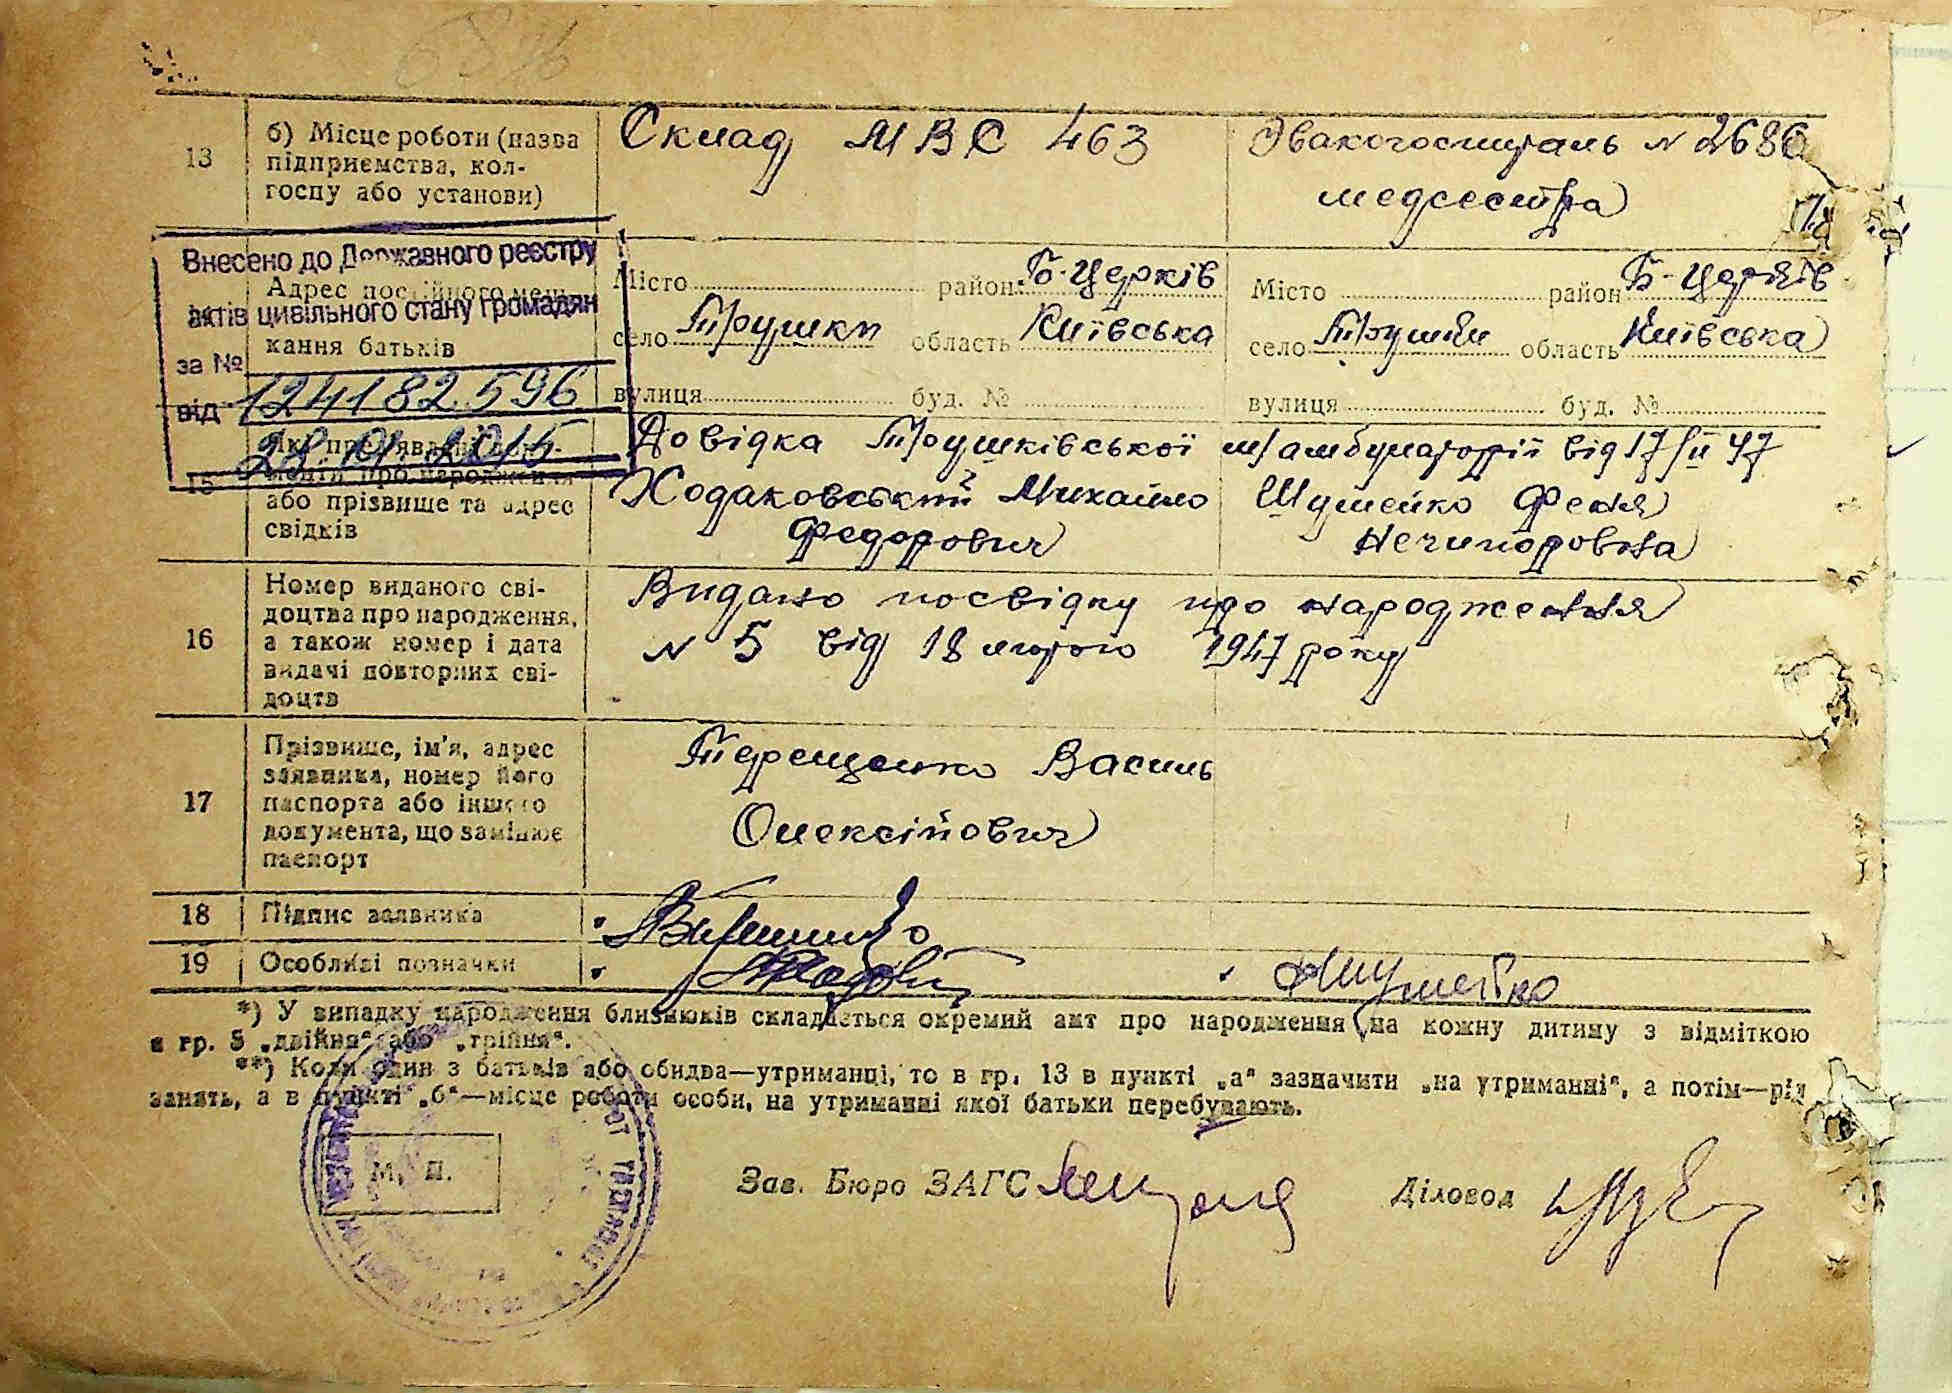 13 б) Місце роботи (назва підприємства, колгоспу або установи) Склад МВС 463 Эвакогоспиталь № 2686 медсестра
Внесено до Державного реєстру
актів цивільного стану громадян
за № 124182596
від 23.01.2015
Адрес постійного мешкання батьків
Місто район Б-Церків Місто район Б-Церків
село Трушки область Київська село Трушки область Київська
вулиця буд. № вулиця буд. №
15 або прізвище та адрес свідків
Довідка Трушківської амбулаторії від 17/II 47
Ходаковський Михайло Шумейко Феня
Федорович Нечипоровна
16 Номер виданого свідоцтва про народження, а також номер і дата видачі повторних свідоцтв
Видано посвідку про народження
№ 5 від 18 лютого 1947 року
17 Прізвище, ім'я, адрес заявника, номер його паспорта або іншого документа, що замінює паспорт
Терещенко Василь
Олексійович
18 Підпис заявника
19 Особливі позначки Шумейко
*) У випадку народження близнюків складається окремий акт про народження на кожну дитину з відміткою
в гр. 5 „двійня“ або „трійня“.
**) Коли один з батьків або обидва—утриманці, то в гр. 13 в пункті „а“ зазначити „на утриманні“, а потім—рід
занять, а в пункті „б“—місце роботи особи, на утриманні якої батьки перебувають.
М. П.
Зав. Бюро ЗАГС Діловод